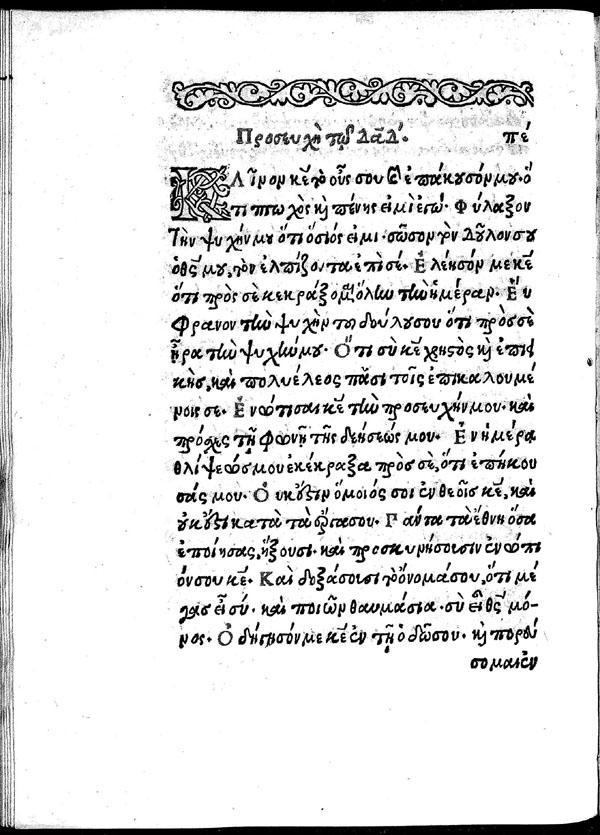 Προσευχὴ τῷ Δα̅δ. πέ
ΚΛῖνον κ̅ε τὸ οὖς σου κὶ ἐπάκουσόν μου· ὅ
τι πτωχὸς κὶ πένης εἰμὶ ἐγώ· Φύλαξον
τὴν ψυχήν μου ὅτι ὅσιός εἰμι· σῶσον τὸν δοῦλον σου
ὁ θ̅ς μου, τὸν ἐλπίζοντα ἐπὶ σέ· Ἐλέησόν με κ̅ε
ὅτι πρὸς σὲ κεκράξομαι ὅλην τὴν ἡμέραν· Εὔ
φρανον τὴν ψυχὴν τοῦ δούλου σου ὅτι πρὸς σὲ
ἦρα τὴν ψυχήν μου· Ὅτι σὺ κ̅ε χρηστὸς κὶ ἐπιει
κὴς, καὶ πολυέλεος πᾶσι τοῖς ἐπικαλουμέ
νοις σε· Ἐνώτισαι κ̅ε τὴν προσευχήν μου· καὶ
πρόσχες τῇ φωνῇ τῆς δεήσεώς μου· Ἐν ἡμέρα
θλίψεώς μου ἐκέκραξα πρὸς σὲ, ὅτι ἐπήκου
σάς μου· Οὐκ ἔστιν ὅμοιός σοι ἐν θεοῖς κ̅ε, καὶ
οὐκ ἔστι κατὰ τὰ ἔργα σου· Πάντα τὰ ἔθνη ὅσα
ἐποίησας, ἥξουσι· καὶ προσκυνήσουσιν ἐνώπι
όν σου κ̅ε· Καὶ δοξάσουσι τὸ ὄνομά σου, ὅτι μέ
γας εἶ σύ· καὶ ποιῶν θαυμάσια· σὺ εἶ θ̅ς μό-
νος· Ὁδήγησόν με κ̅ε ἐν τῇ ὁδῷ σου· κὶ πορεύ
σομαι ἐν